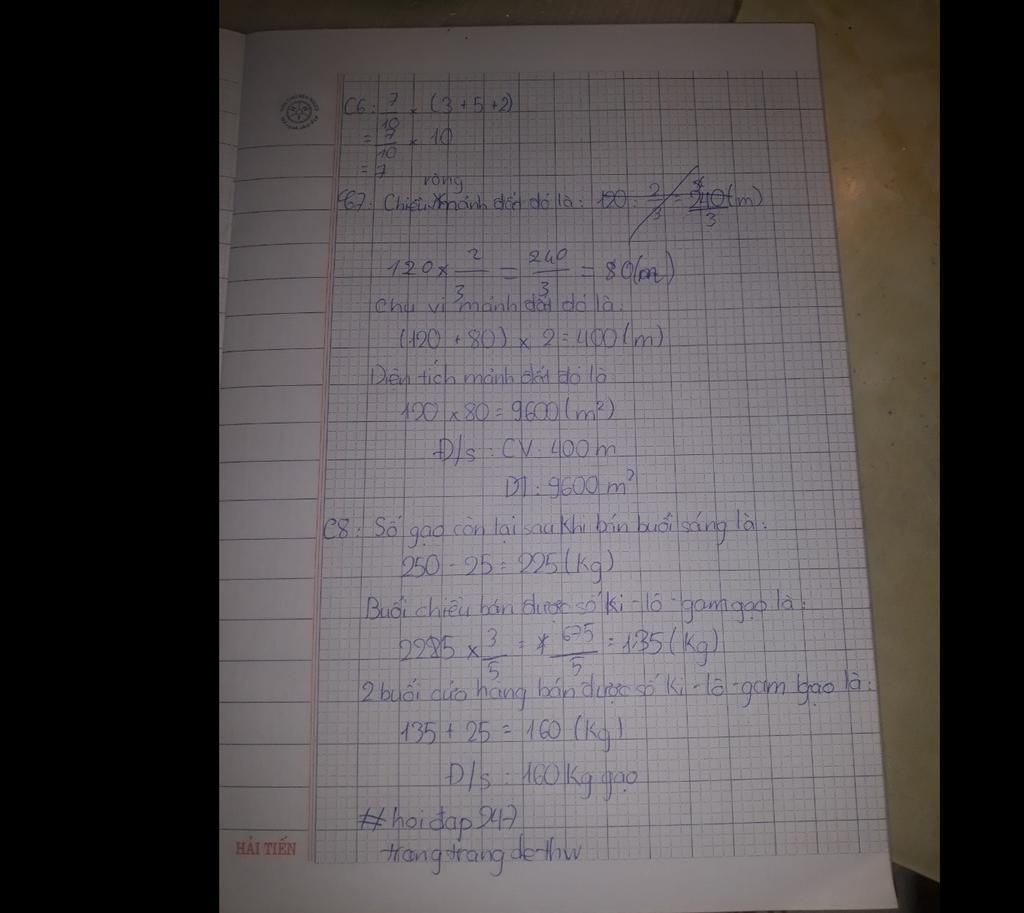 C6: 7/10 × (3 + 5 + 2)
= 7/10 × 10
= 7
C7: Chiều rộng mảnh đất đó là: 120 : 2/3 = 240/3 (m)
120 × 2/3 = 240/3 = 80(m)
Chu vi mảnh đất đó là:
(120 + 80) × 2 = 400(m)
Diện tích mảnh đất đó là
120 × 80 = 9600(m²)
Đ/s: CV: 400m
DT: 9600m²
C8: Số gạo còn lại sau khi bán buổi sáng là:
250 - 25 = 225(kg)
Buổi chiều bán được số ki-lô-gam gạo là:
225 × 3/5 = 675/5 = 135(kg)
2 buổi cửa hàng bán được số ki-lô-gam gạo là:
135 + 25 = 160 (kg)
Đ/s: 160 kg gạo
#hoidap247
trangtrangde-thw
HẢI TIẾN